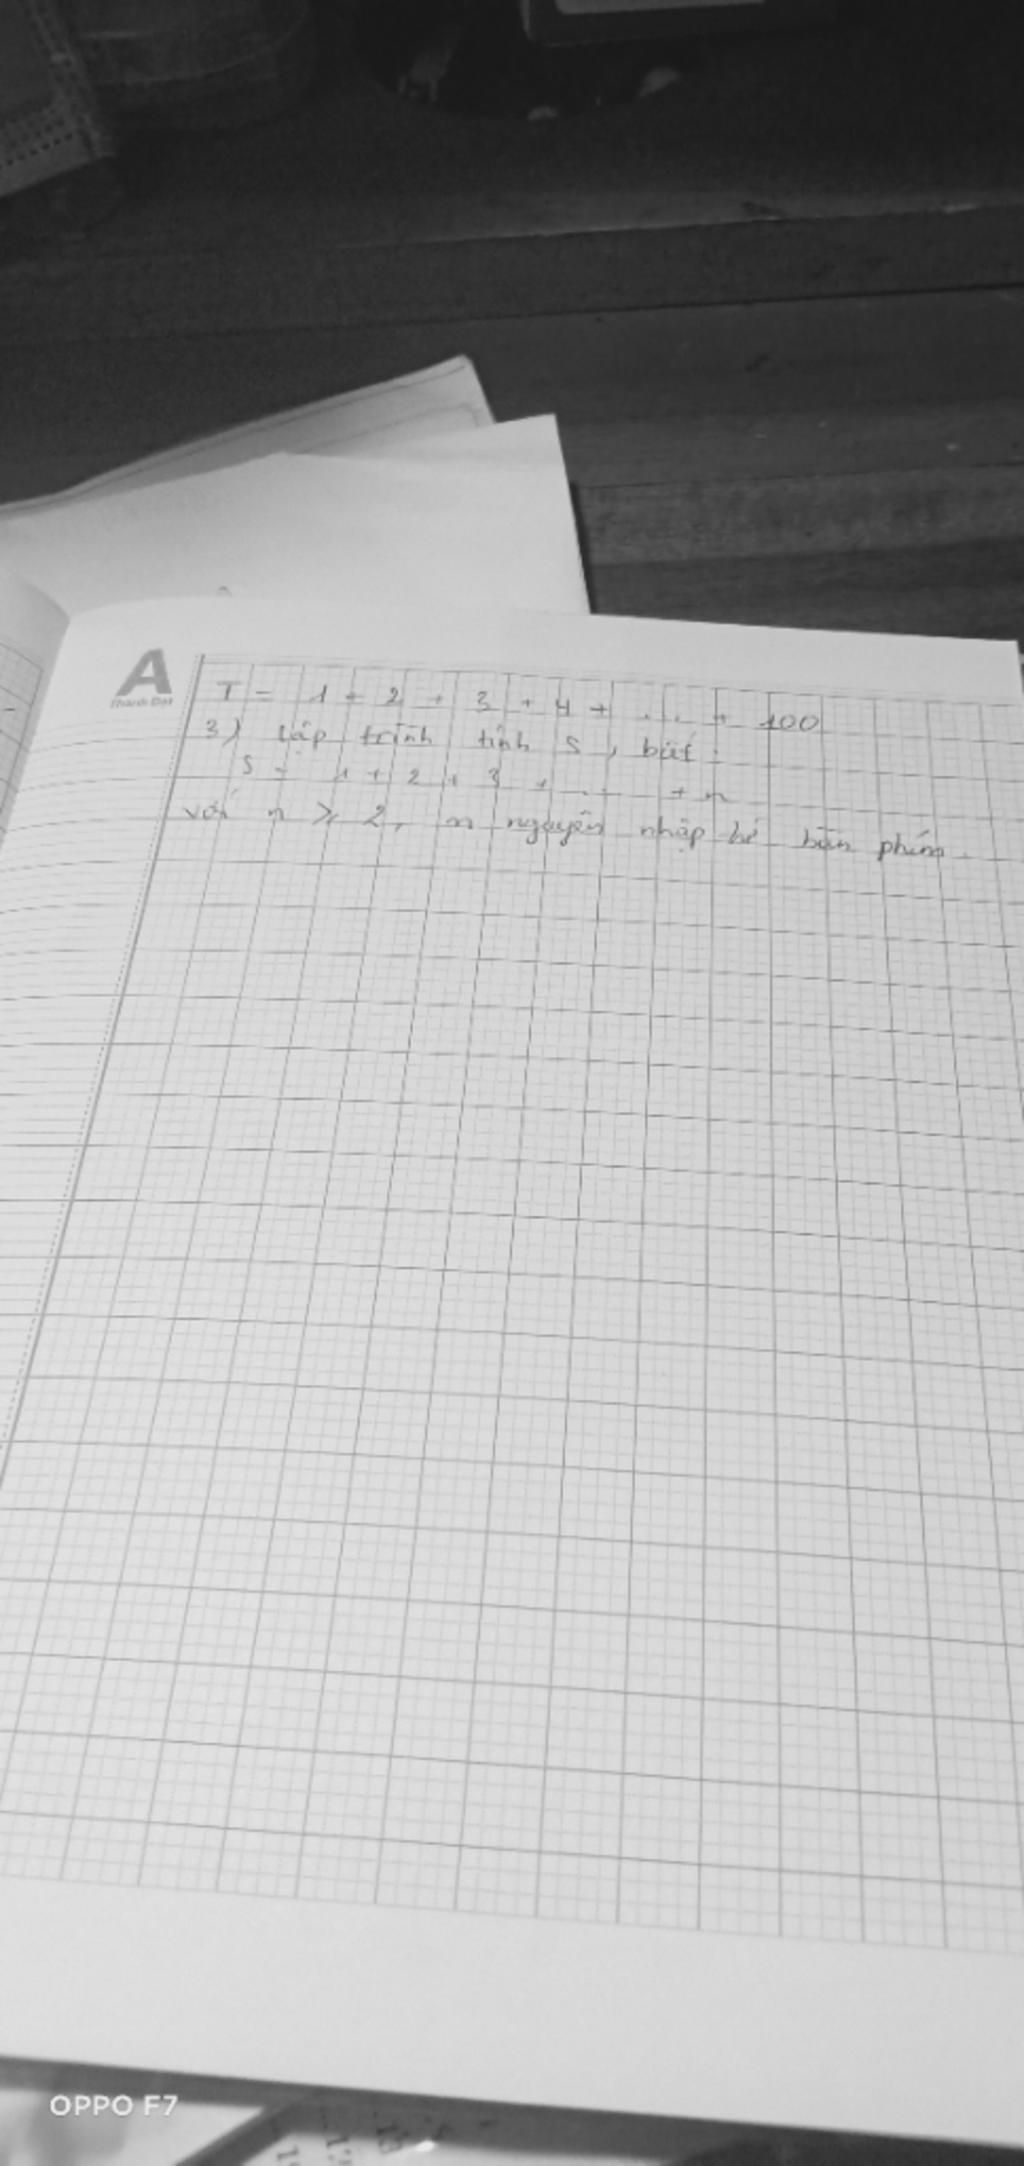 A
Thành Đạt
T = 1 + 2 + 3 + 4 + ... + 100
3) Lập trình tính S, biết:
S = 1 + 2 + 3 + ... + n
với n ≥ 2, n nguyên nhập từ bàn phím.
OPPO F7